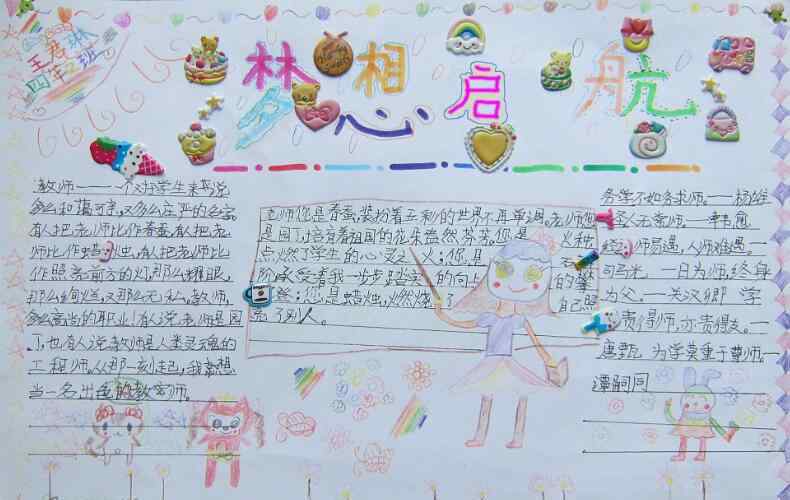 王君琳
四年 班
梦想启航
教师——一个对学生来说
多么和蔼可亲,又多么庄严的名字
有人把老师比作春蚕,有人把老
师比作蜡烛,有人把老师比
作照亮前方的灯,那么耀眼,
那么绚烂,又那么无私,教师,
多么高尚的职业!有人说,老师是园
丁,也有人说,教师是人类灵魂的
工程师,从那一刻起,我就想
当一名出色的教师。
老师您是春蚕,装扮着五彩的世界不再单调,老师您
是园丁,培育着祖国的花朵益然芬芳,您是 火种
点燃了学生的心灵之火;您是 石
阶承受着我一步步踏实的向上 的攀
登;您是蜡烛,燃烧了 自己照
亮了别人。
务学不如务求师。——杨雄
圣人无常师。——韩愈
经师易遇,人师难遇。—
司马光 一日为师,终身
为父。—关汉卿 学
贵得师,亦贵得友。—
唐甄 为学莫重于尊师。—
谭嗣同